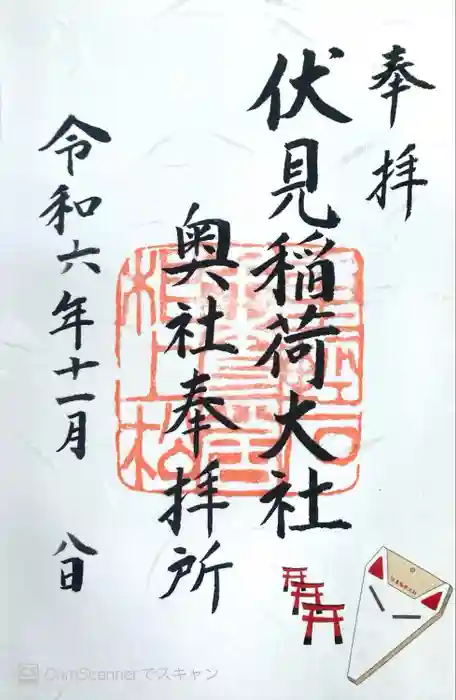 奉拝
伏見稲荷大社
奥社奉拝所
令和六年十一月 八日
CS CamScannerでスキャン